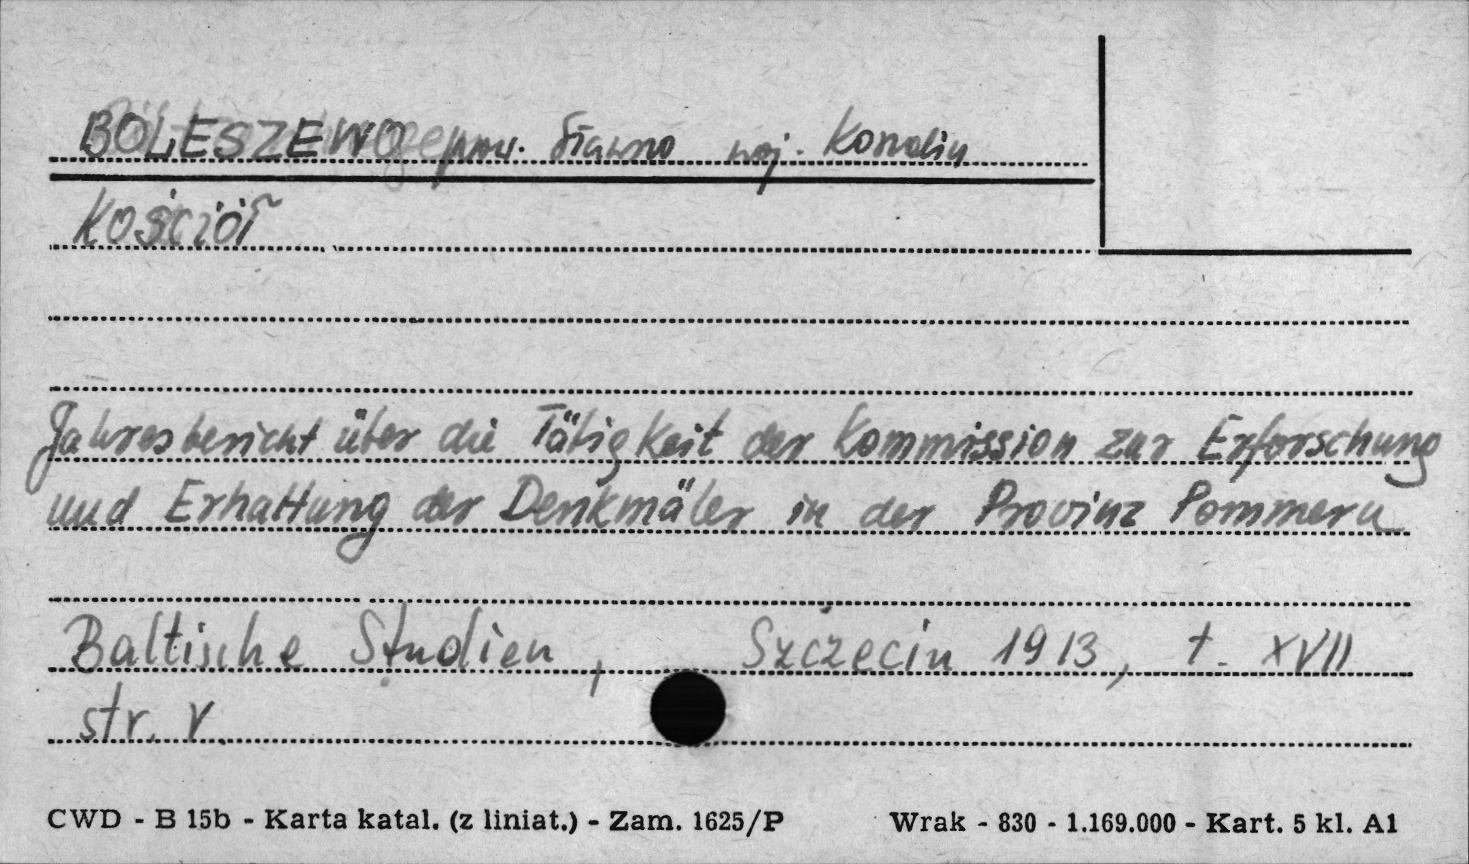 BOLESZEWO pow. Sławno woj. Koszalin
Kościół
Jahresbericht über die Tätigkeit der Kommission zur Erforschung
und Erhaltung der Denkmäler in der Provinz Pommern
Baltische Studien, Szczecin 1913, t. XVII
str. V.
CWD - B 15b - Karta katal. (z liniat.) - Zam. 1625/P Wrak - 830 - 1.169.000 - Kart. 5 kl. A1